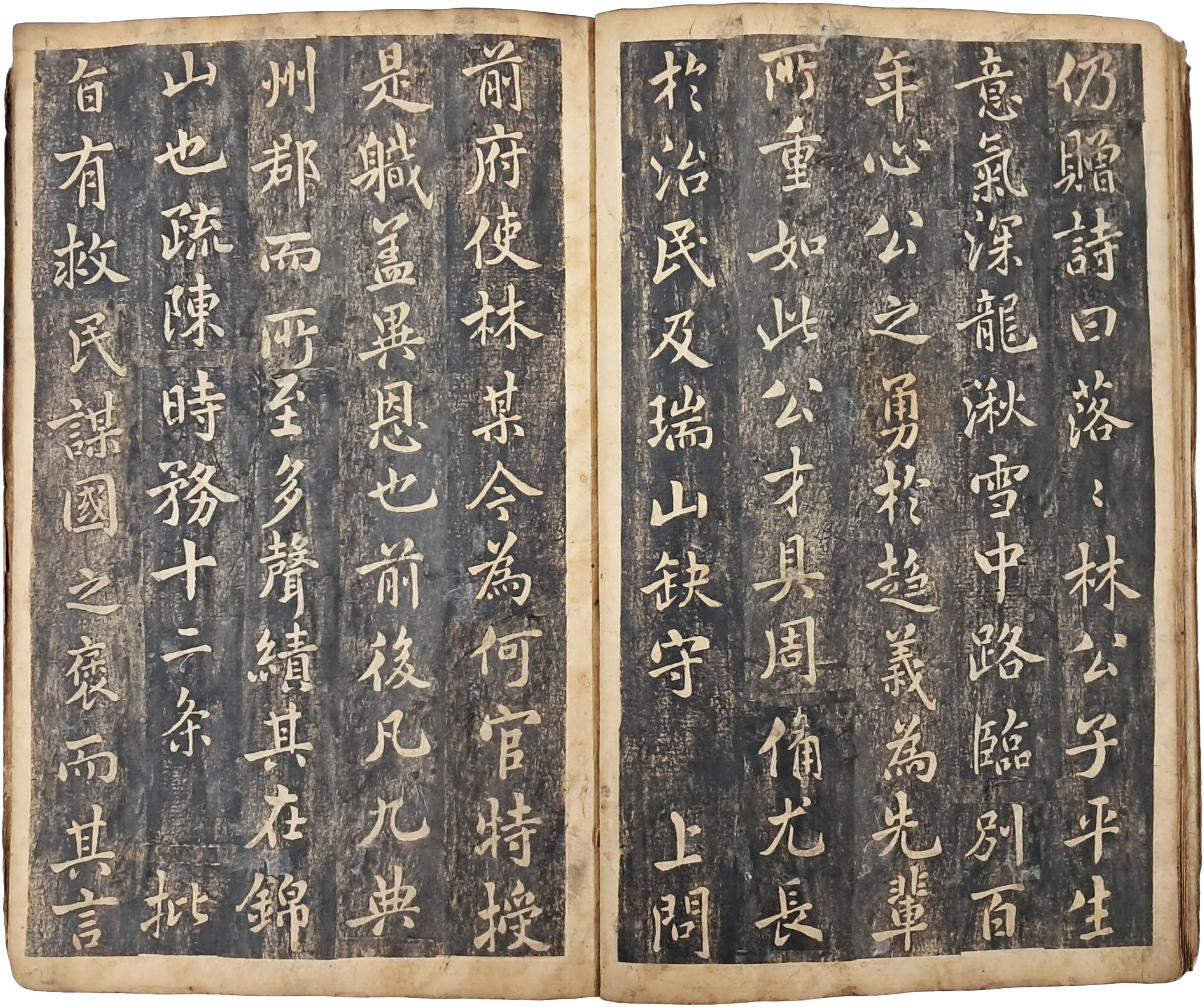 仍贈詩曰落〻林公子平生
意氣深龍湫雪中路臨別百
年心公之勇於趍義為先輩
所重如此公才具周備尤長
於治民及瑞山缺守　上問
前府使林某今為何官特授
是職盖異恩也前後凡九典
州郡而所至多聲績其在錦
山也疏陳時務十二条　批
旨有救民謀國之褒而其言